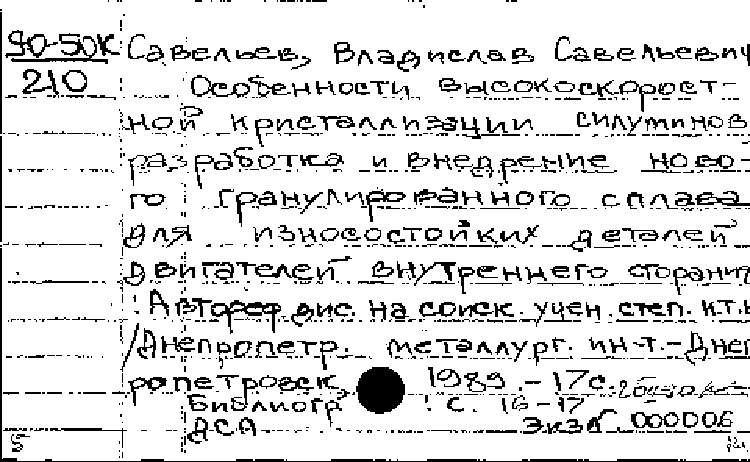 90-50К Савельев, Владислав Савельевич
210 Особенности высокоскорост-
ной кристаллизации силуминов
разработка и внедрение ново-
го гранулированного сплава
для износостойких деталей
двигателей внутреннего сгорани
: Автореф дис. на соиск. учен. степ. к.т.н
/Днепропетр. металлург. ин-т.-Днеп
ропетровск, 1989.-17с.
Библиогр.: с. 16-17
ДСА Экз N 000006
5